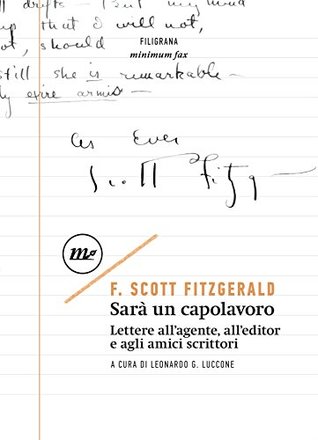 up that I will not,
should
still she is remarkable —
FILIGRANA
minimum fax
As Ever
Scott Fitzg
m
F. SCOTT FITZGERALD
Sarà un capolavoro
Lettere all'agente, all'editor
e agli amici scrittori
A CURA DI LEONARDO G. LUCCONE